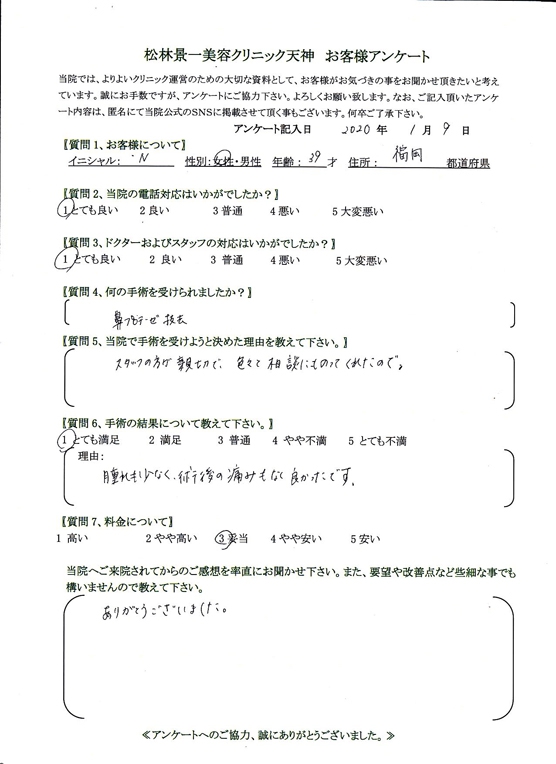 松林景一美容クリニック天神　お客様アンケート
当院では、よりよいクリニック運営のための大切な資料として、お客様がお気づきの事をお聞かせ頂きたいと考え
ています。誠にお手数ですが、アンケートにご協力下さい。よろしくお願い致します。なお、ご記入頂いたアンケ
ート内容は、匿名にて当院公式のSNSに掲載させて頂く事もございます。何卒ご了承下さい。
アンケート記入日　2020 年　1 月　9 日
〖質問 1、お客様について〗
イニシャル：N　性別：女性・男性　年齢：39 才　住所：福岡　都道府県
〖質問 2、当院の電話対応はいかがでしたか？〗
1 とても良い　2 良い　3 普通　4 悪い　5 大変悪い
〖質問 3、ドクターおよびスタッフの対応はいかがでしたか？〗
1 とても良い　2 良い　3 普通　4 悪い　5 大変悪い
〖質問 4、何の手術を受けられましたか？〗
鼻プロテーゼ抜去
〖質問 5、当院で手術を受けようと決めた理由を教えて下さい。〗
スタッフの方が親切で、色々て相談にものってくれたので。
〖質問 6、手術の結果について教えて下さい。〗
1 とても満足　2 満足　3 普通　4 やや不満　5 とても不満
理由：
腫れも少なく、術後の痛みもなく良かったです。
〖質問 7、料金について〗
1 高い　2 やや高い　3 妥当　4 やや安い　5 安い
当院へご来院されてからのご感想を率直にお聞かせ下さい。また、要望や改善点など些細な事でも
構いませんので教えて下さい。
ありがとうございました。
≪アンケートへのご協力、誠にありがとうございました。≫